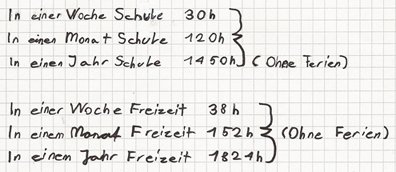 In einer Woche Schule 30h
In einen Monat Schule 120h
In einen Jahr Schule 1450h (Ohne Ferien)
In einer Woche Freizeit 38h
In einem Monat Freizeit 152h (Ohne Ferien)
In einem Jahr Freizeit 1824h